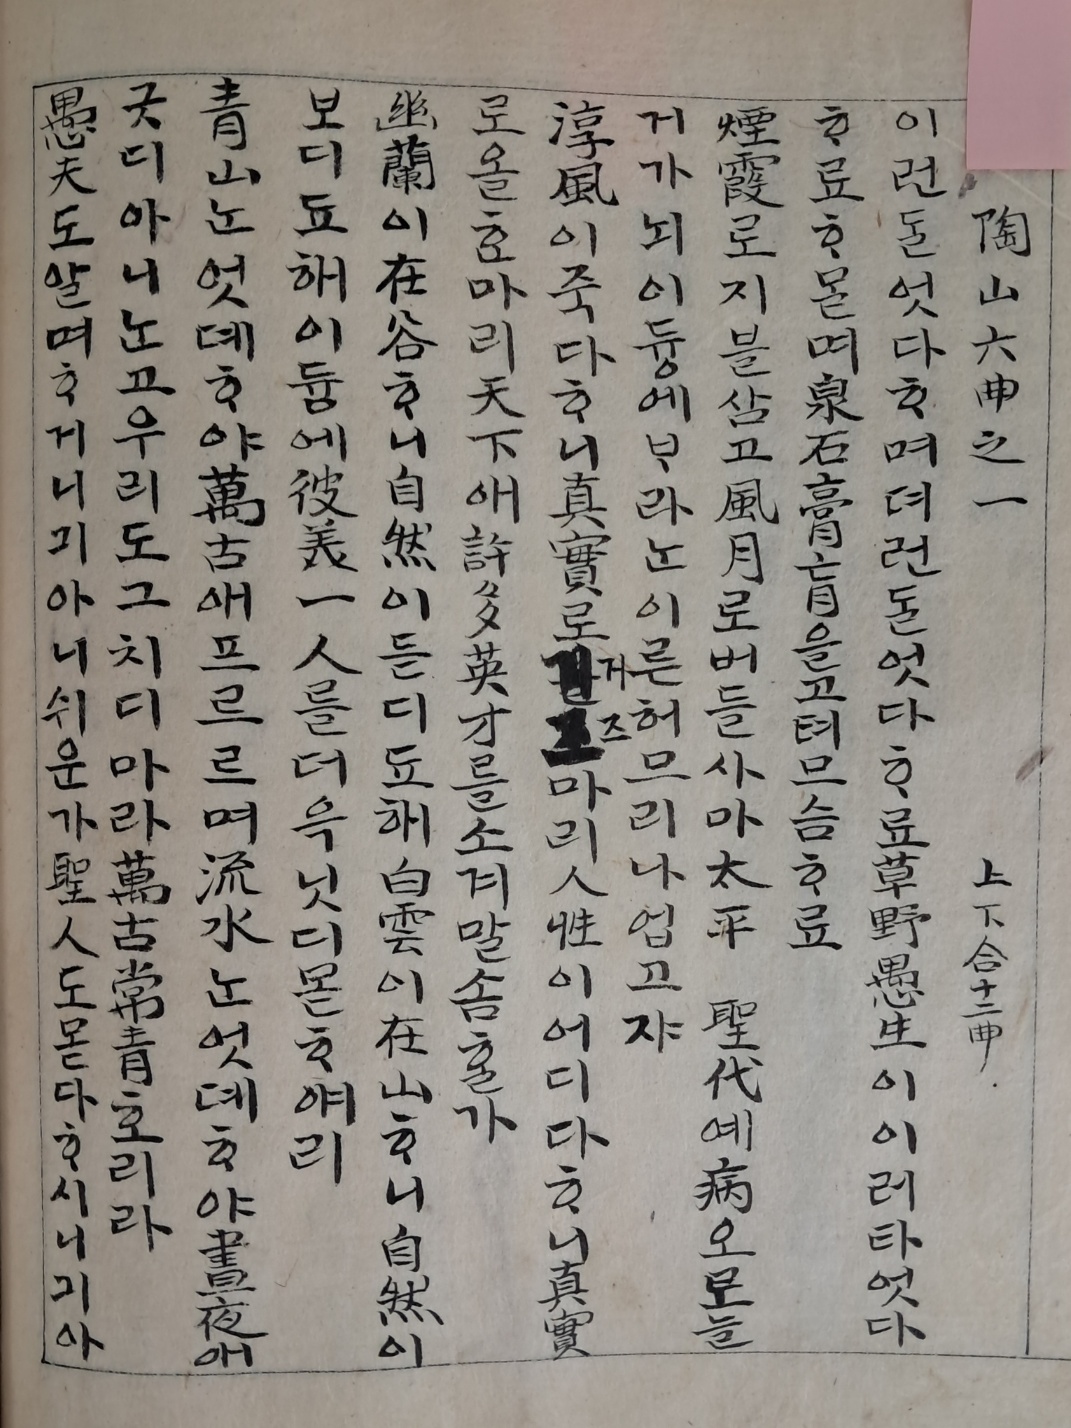 陶山六曲之一 上下合十二曲
이런ᄃᆞᆯ엇다ᄒᆞ며뎌런ᄃᆞᆯ엇다ᄒᆞ료草野愚生이이러타엇다
ᄒᆞ료ᄒᆞᄆᆞᆯ며泉石膏肓을고텨므슴ᄒᆞ료
煙霞로지블삼고風月로버들사마太平 聖代예病오로늘
거가뇌이듕에ᄇᆞ라ᄂᆞᆫ이른허므리나업고쟈
淳風이죽다ᄒᆞ니真實로거즈마리人性이어디다ᄒᆞ니真實
로올ᄒᆞᆫ마리天下애許多英才를소겨말솜ᄒᆞᆯ가
幽蘭이在谷ᄒᆞ니自然이듣디됴해白雲이在山ᄒᆞ니自然이
보디됴해이듕에彼美一人를더윽닛디몯ᄒᆞ얘리
青山ᄂᆞᆫ엇뎨ᄒᆞ야萬古애프르르며流水ᄂᆞᆫ엇뎨ᄒᆞ야晝夜애
긋디아니ᄂᆞᆫ고우리도그치디마라萬古常青호리라
愚夫도알며ᄒᆞ거니긔아니쉬운가聖人도몯다ᄒᆞ시니긔아